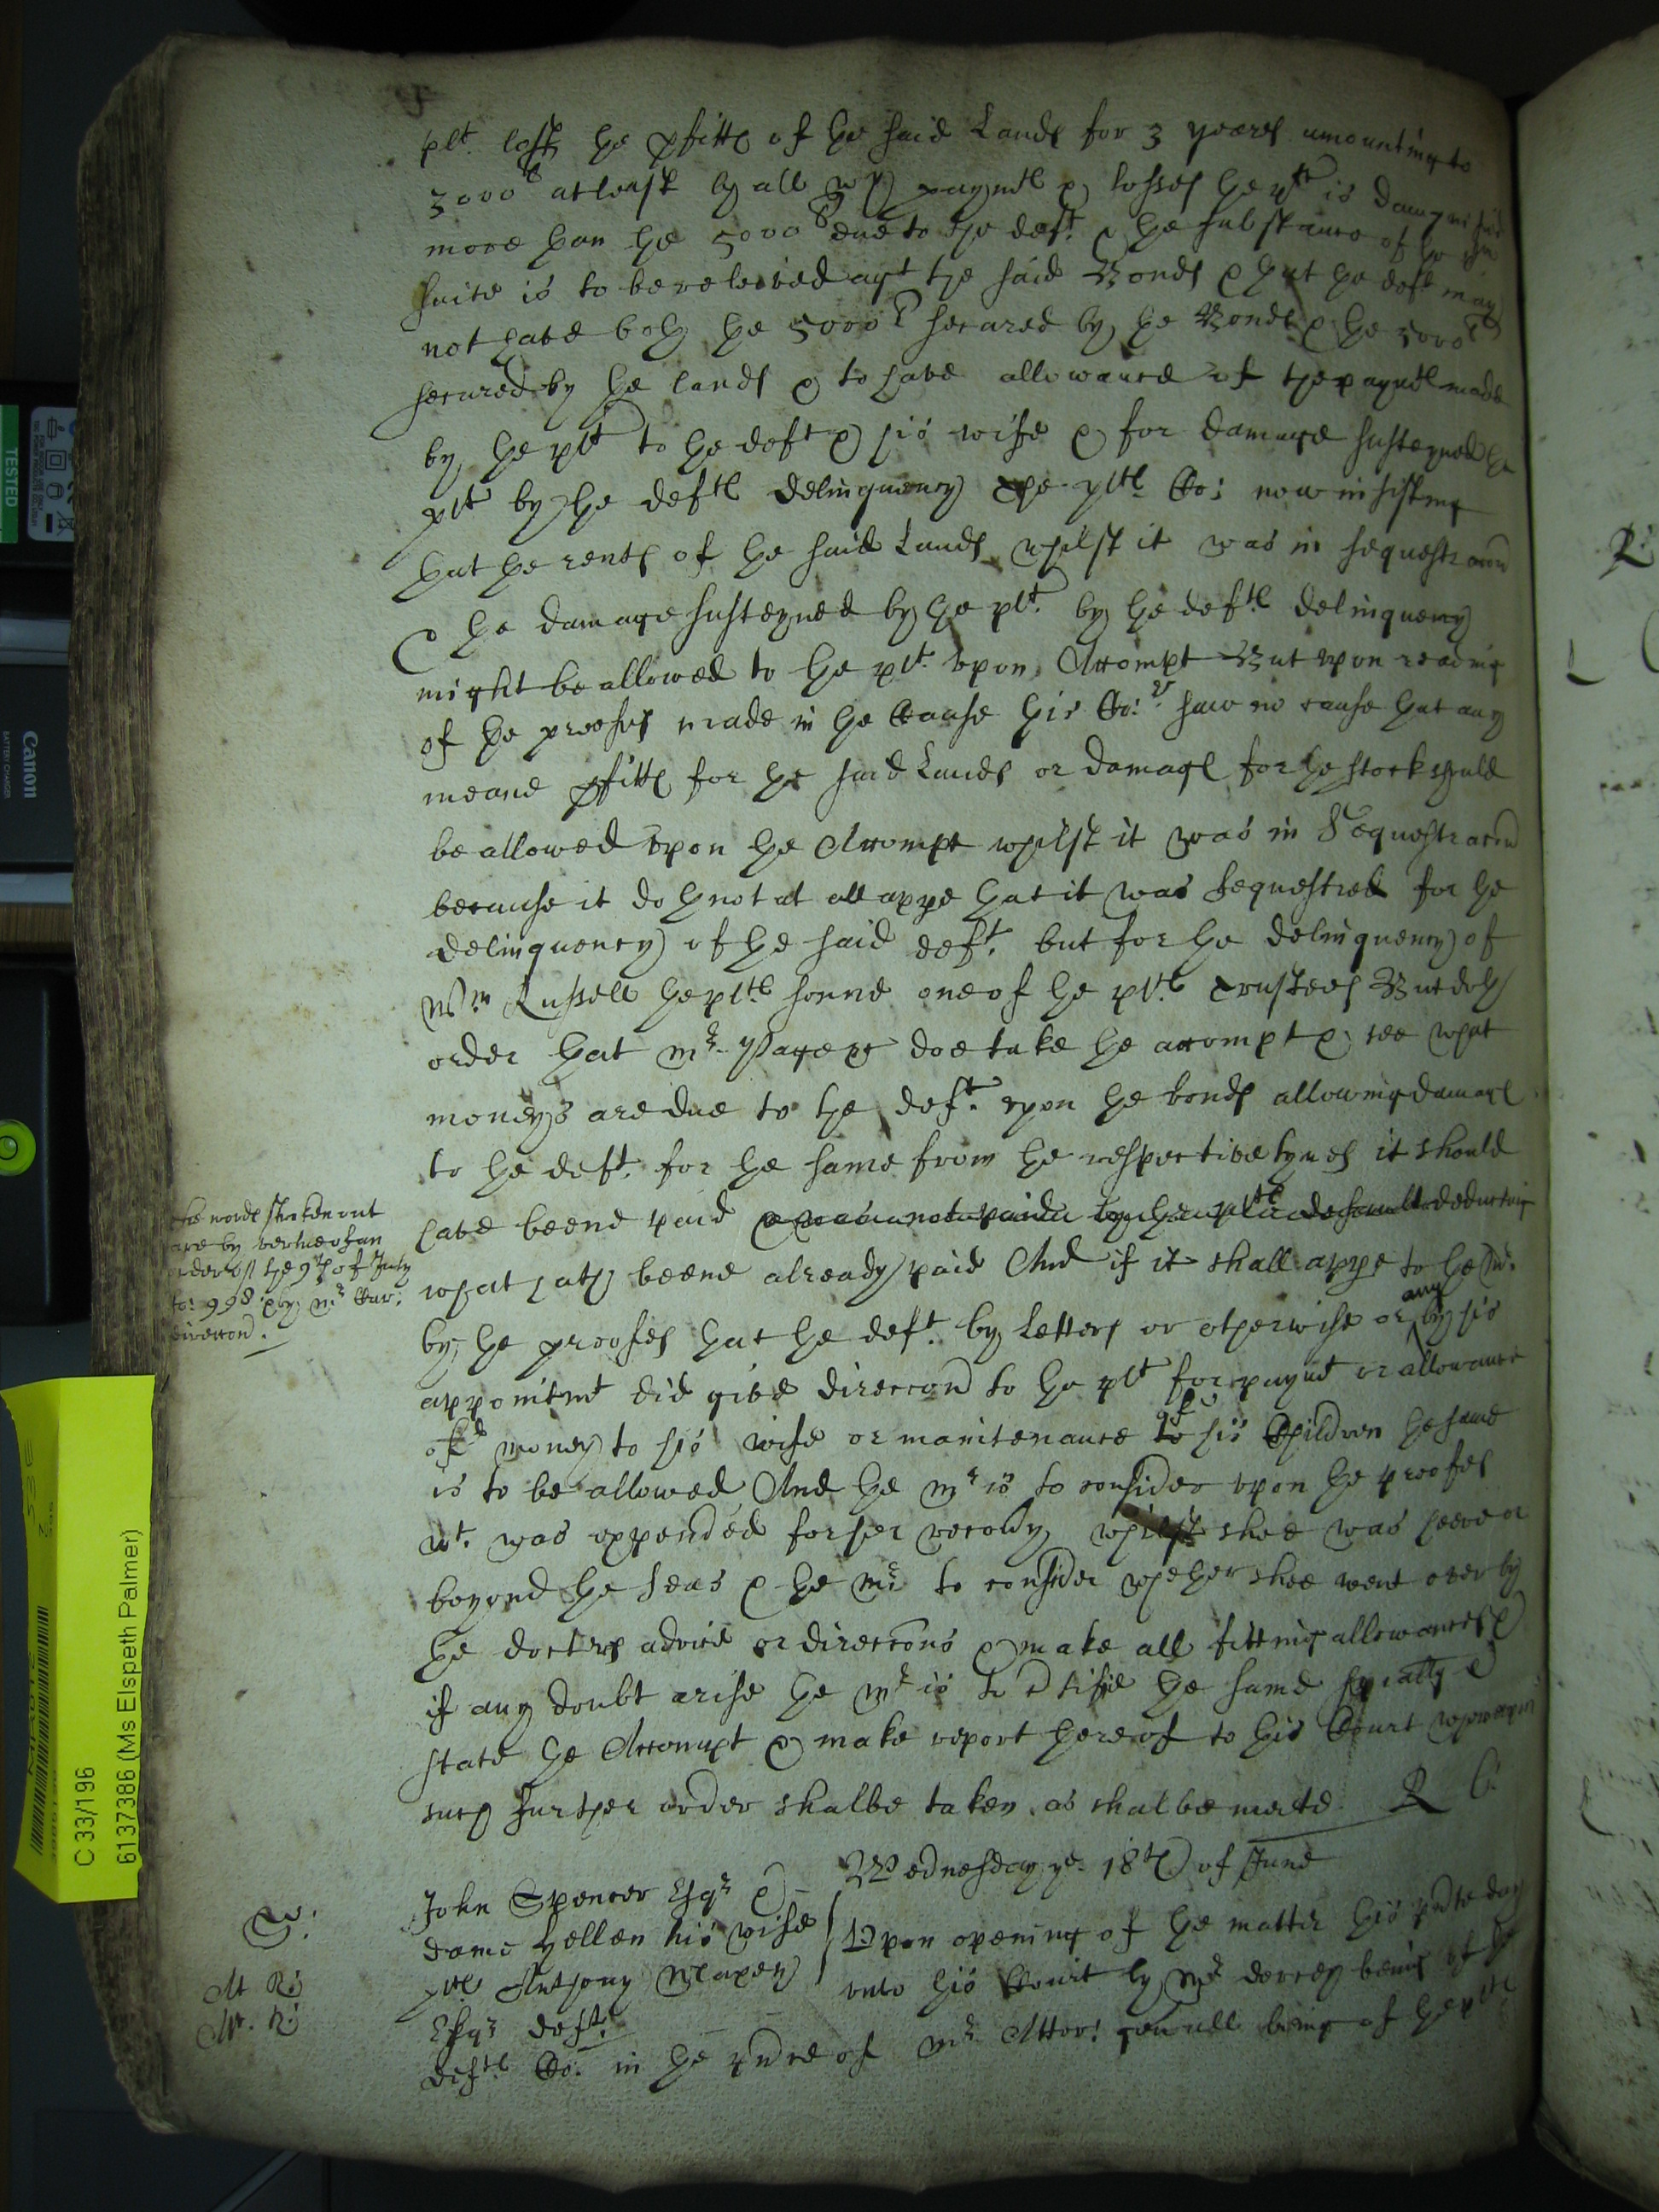 plt. lost the pfitts of the said Lands for 3 yeares amounting to
3000l at least by all wch paymts & losses the plt is damnified
more than the 5000l due to the deft. & the substance of the
suite is to be releived agt the said Bonds & that the deft may
not have both the 5000l secured by the Bonds & the 5000l
secured by the lands & to have allowance of the paymts made
by the plt to the deft & his wife & for damage susteyned the
plt by the defts delinquency The plts Co: now insisting
that the rents of the said Lands whilst it was in sequestracon
& the damage susteyned by the plt. by the defts delinquency
might be allowed to the plt. upon Accompt But upon reading
of the proofes made in the Cause this Co:rt saw no cause that any
meane pfitts for the said Lands or damage for the stock should
be allowed upon the Accompt whilst it was in Sequestracon
because it doth not at all appe that it was sequestred for the
delinquency of the said deft. but for the delinquency of
Wm Russell the plts sonne one of the plts Trustees But doth
order that mr. doe take the accompt & see what
moneys are due to the deft. upon the bonds allowing damage
to the deft. for the same from the respective tymes it should
have beene paid & was not paid by the plts default deducting
what hath beene already paid And if it shall appe to the
by the proofes that the deft. by Letters or otherwise or any by his
appointmt did give direccon to the plt for paymt or allowance
of money to his wife or maintenance of his Children the same
is to be allowed And the mr is to consider upon the proofes
wt. was expended for her recovy whilst shee was
beyond the seas & the mr to consider whether shee went over by
the docters advice or direccons & make all fitting allowances &
if any doubt arise the mr is to certifie the same spially &
state the Accompt & make report thereof to this Court whereupon
such further order shalbe taken as shalbe meete R C
the words stroken out
are by vertue of an
order of the 9th of July
fo: 998 & by mr
direccon.
Wednesday ye. 18th of June
John Spencer Esqr &
dame Hellen his wife
plts Anthony
Esqr deft.
Upon opening of the matter this psente day
unto this Court by Mr being of the
defts Co: in the psnce of Mr Attor: genall being of the plts
At R:
At. R:
TESTED
Canon
BATTERY CHARGER
C 33/196
6137386 (Ms Elspeth Palmer)